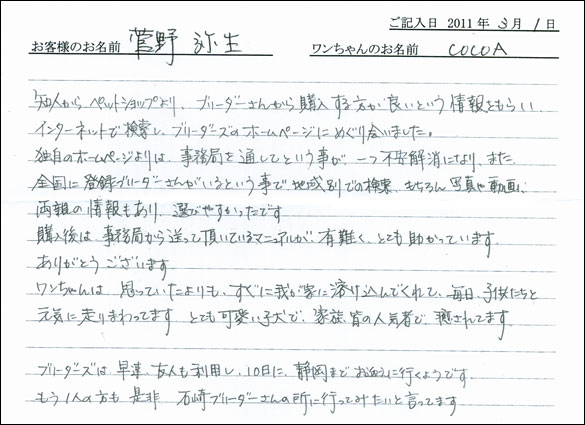 ご記入日 2011年 3月 1日
お客様のお名前 菅野 弥生 ワンちゃんのお名前 COCOA
知人から ペットショップより、ブリーダーさんから購入する方が良いという情報をもらい
インターネットで検索し、ブリーダーズのホームページにめぐり会いました。
独自のホームページよりは、事務局を通してという事が 一つ不安解消になり、また、
全国に登録ブリーダーさんがいるという事で地域別での検索、もちろん写真や動画、
両親の情報もあり、選びやすかったです
購入後は事務局から送って頂いているマニュアルが有難く、とても助かっています
ありがとうございます
ワンちゃんは 思っていたよりも、すぐに我が家に溶け込んでくれて、毎日、子供たちと
元気に走りまわってます とても可愛い子犬で、家族皆の人気者で、癒されてます。
ブリーダーズは、早速、友人も利用し、10日に、静岡までお迎えに行くようです
もう1人の方も是非 石崎ブリーダーさんの所に行ってみたいと言ってます